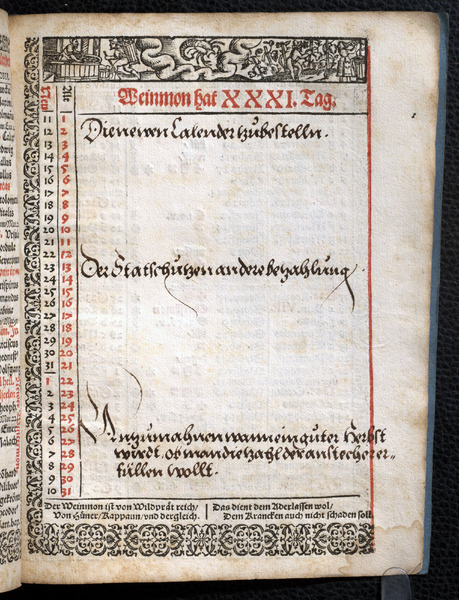 Weinmon hat XXXI. Tag.
New Alt
11 1
12 2
13 3
14 4
15 5
16 6
17 7
18 8
19 9
20 10
21 11
22 12
23 13
24 14
25 15
26 16
27 17
28 18
29 19
30 20
31 21
1 22
2 23
3 24
4 25
5 26
6 27
7 28
8 29
9 30
10 31
Die newen Calender zu bestelln.
Der Statschützen andere bezahlung.
Anzumahnen wann ein guter Herbst
wirdt, ob man die zahl der anstecher er-
füllen wollt.
Der Weinmon ist von Wildprät reich/
Von Hüner/ Kappaun/ vnd dergleich.
Das dient dem Aderlassen wol/
Dem Krancken auch nicht schaden soll.